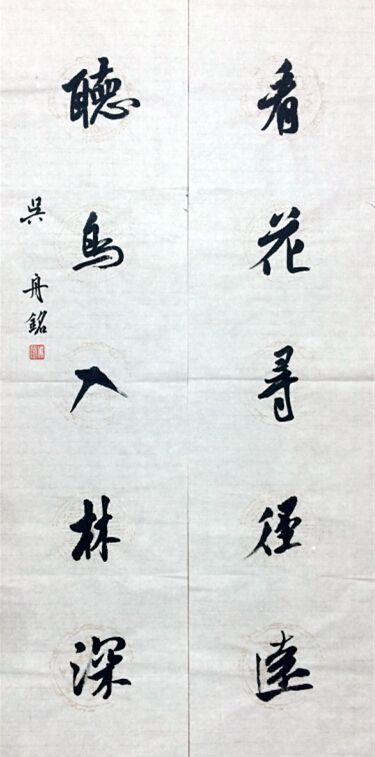 看花尋徑遠
聽鳥入林深
吳舟銘